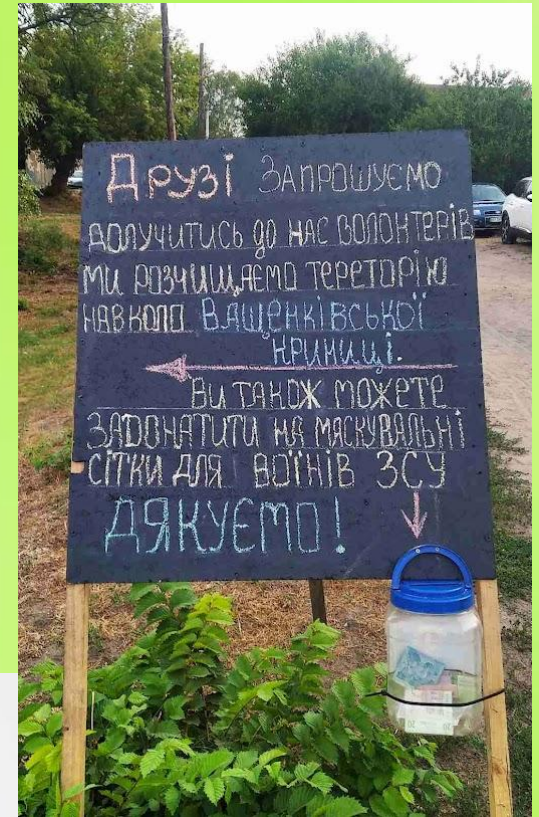 Друзі Запрошуємо
долучитись до нас волонтерів
ми розчищаємо тереторію
навколо Ващенківської
криниці.
Ви також можете
задонатити на маскувальні
сітки для воїнів ЗСУ
Дякуємо!